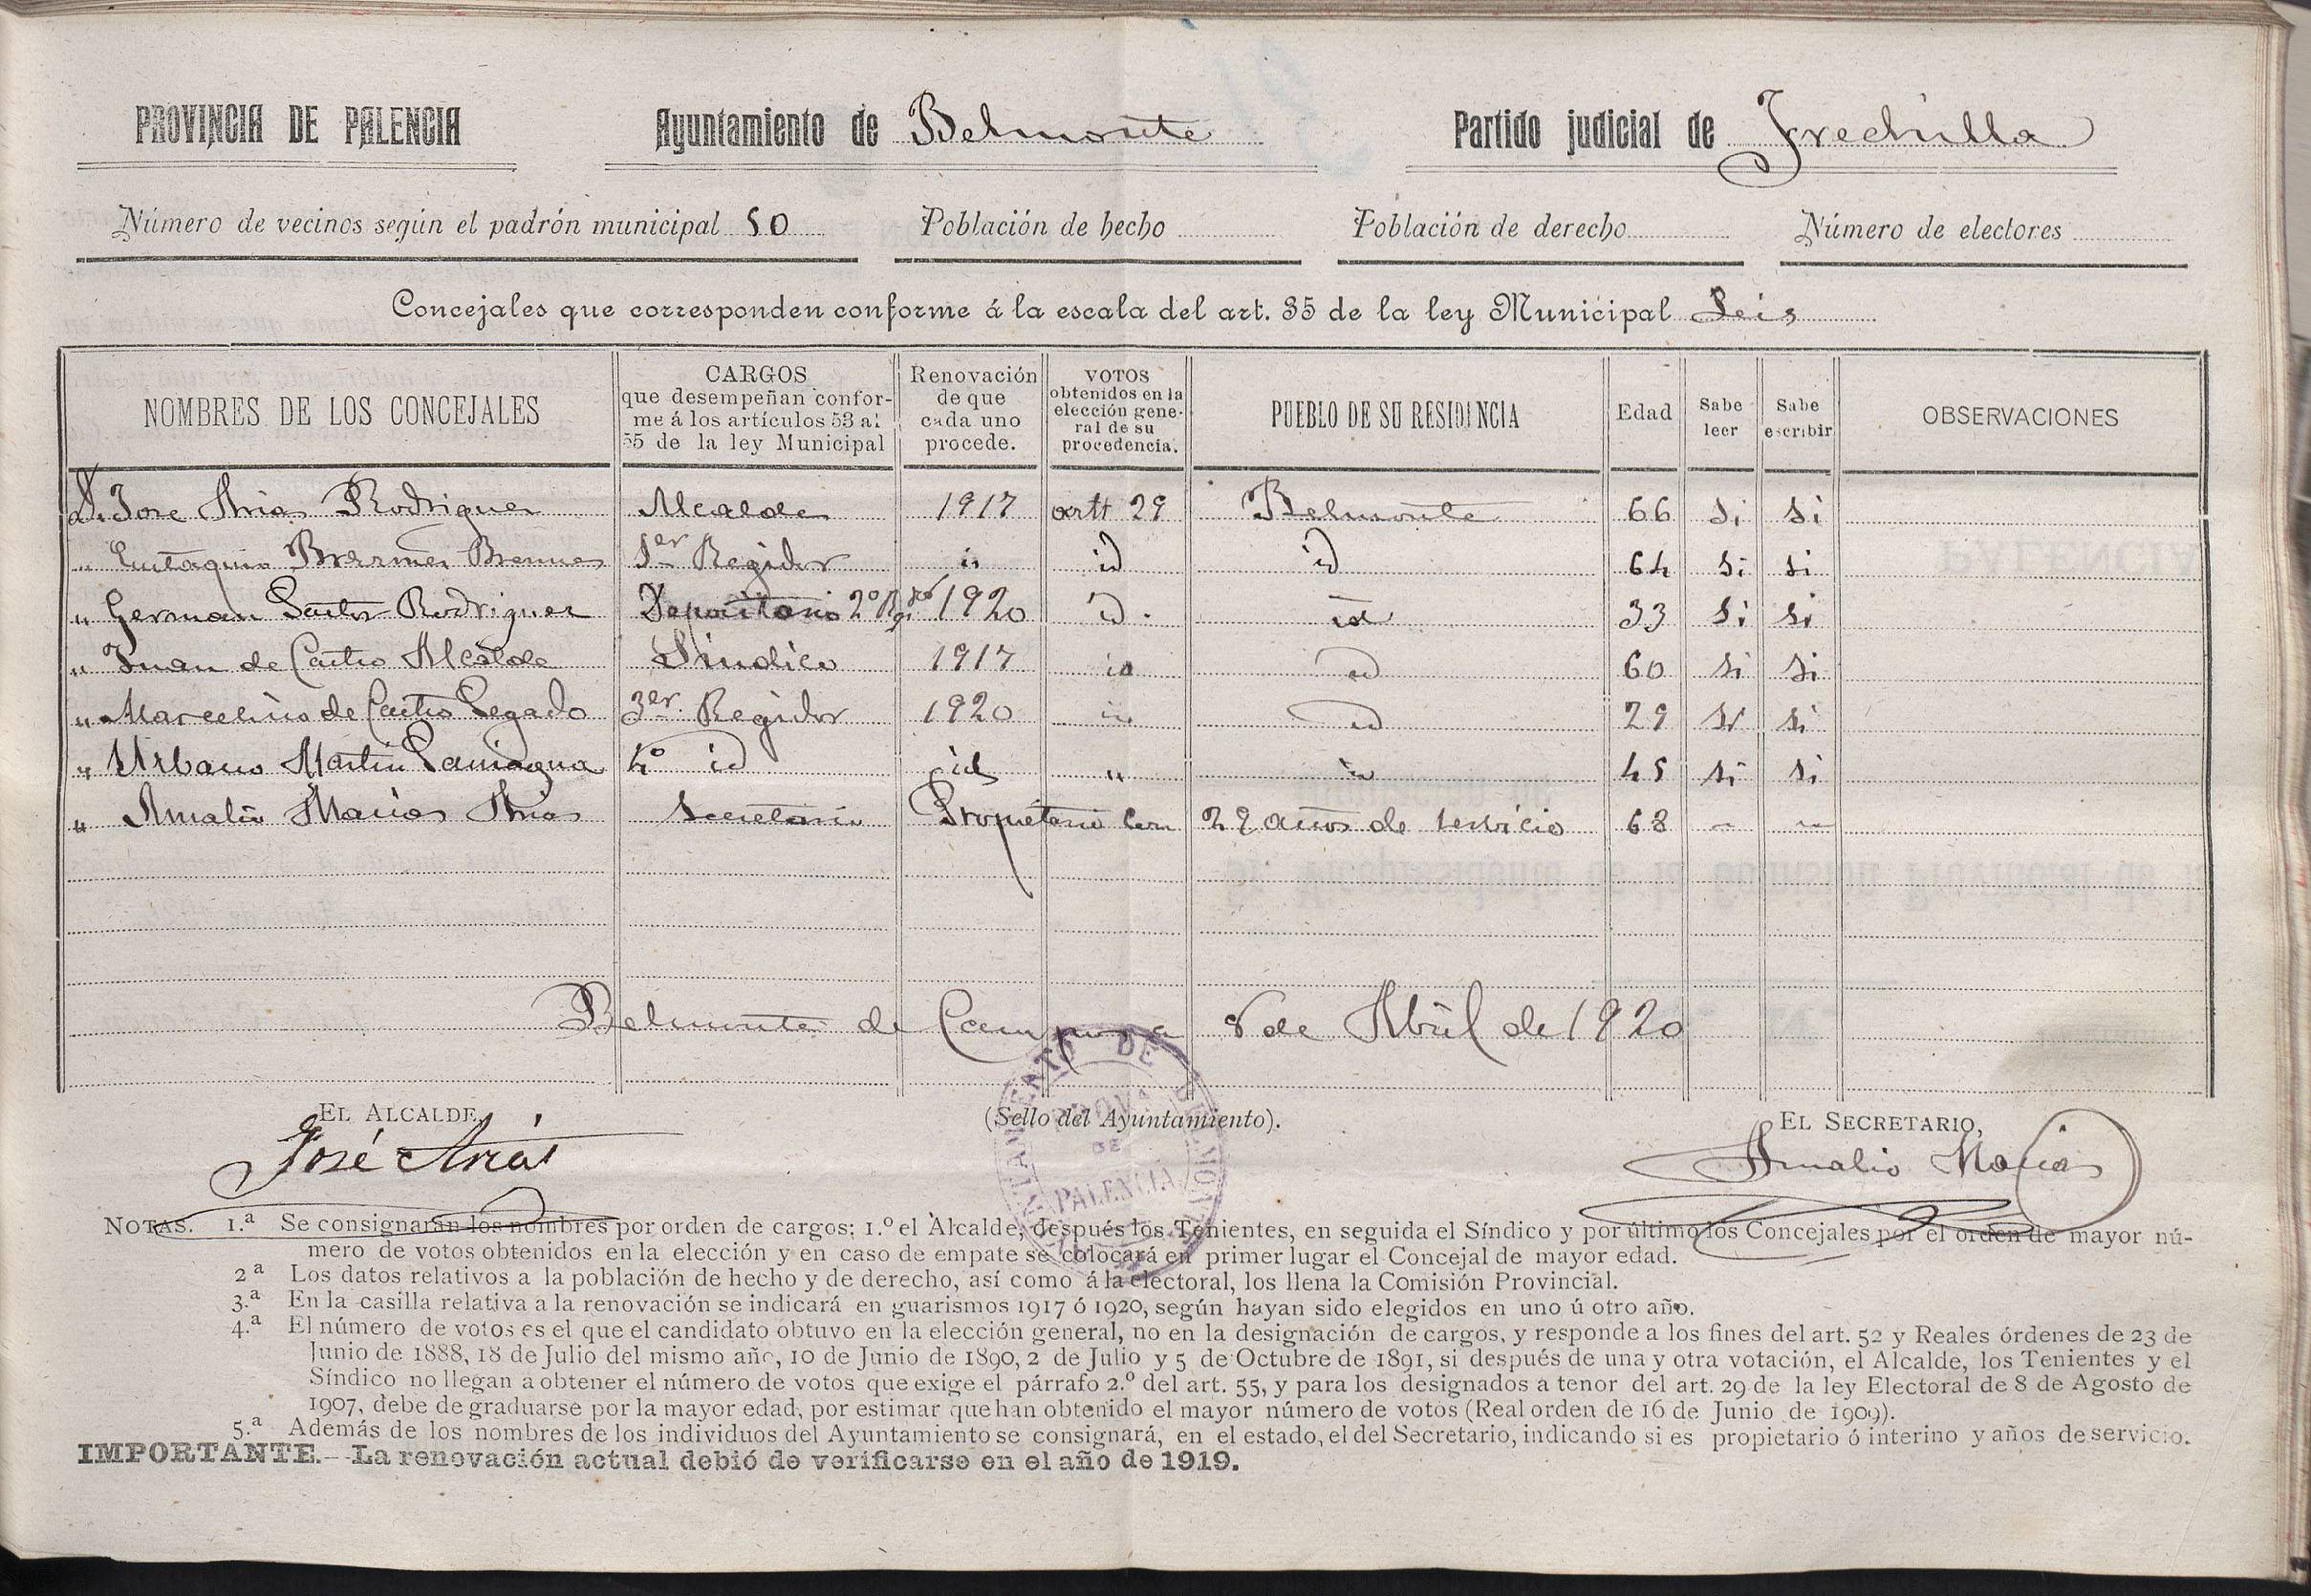 PROVINCIA DE PALENCIA Ayuntamiento de Belmonte Partido judicial de Frechilla
Número de vecinos según el padrón municipal 50 Población de hecho Población de derecho Número de electores
Concejales que corresponden conforme á la escala del art. 35 de la ley Municipal Seis
NOMBRES DE LOS CONCEJALES
CARGOS
que desempeñan confor-
me á los artículos 53 al
55 de la ley Municipal
Renovación
de que
cada uno
procede.
VOTOS
obtenidos en la
elección gene-
ral de su
procedencia.
PUEBLO DE SU RESIDENCIA
Edad
Sabe
leer
Sabe
escribir
OBSERVACIONES
D. Jose Arias Rodriguez Alcalde 1917 artt 29 Belmonte 66 Si Si
" Eutaquio 1er Regidor id id id 64 Si Si
" German Santos Rodriguez Depositario 2º 1920 id. id 33 Si Si
" Juan de Castro Alcalde Sindico 1917 id id 60 Si Si
" Marcelino de Castro Legado 3er Regidor 1920 id id 29 Si Si
" Urbano Martin Paniagua 4º id id " id 45 Si Si
" Amalio Macias Arias Secretario Propietario con 29 años de servicio 68 - -
Belmonte de Campos a 8 de Abril de 1920
EL ALCALDE,
(Sello del Ayuntamiento).
EL SECRETARIO,
José Arias
Amalio Macias
AYUNTAMIENTO DE BELMONTE
PROVA
DE
PALENCIA
NOTAS. 1.ª Se consignarán los nombres por orden de cargos: 1.º el Alcalde, después los Tenientes, en seguida el Síndico y por último los Concejales por el orden de mayor nú-
mero de votos obtenidos en la elección y en caso de empate se colocará en primer lugar el Concejal de mayor edad.
2ª Los datos relativos a la población de hecho y de derecho, así como á la electoral, los llena la Comisión Provincial.
3.ª En la casilla relativa a la renovación se indicará en guarismos 1917 ó 1920, según hayan sido elegidos en uno ú otro año.
4.ª El número de votos es el que el candidato obtuvo en la elección general, no en la designación de cargos, y responde a los fines del art. 52 y Reales órdenes de 23 de
Junio de 1888, 18 de Julio del mismo año, 10 de Junio de 1890, 2 de Julio y 5 de Octubre de 1891, si después de una y otra votación, el Alcalde, los Tenientes y el
Síndico no llegan a obtener el número de votos que exige el párrafo 2.º del art. 55, y para los designados a tenor del art. 29 de la ley Electoral de 8 de Agosto de
1907, debe de graduarse por la mayor edad, por estimar que han obtenido el mayor número de votos (Real orden de 16 de Junio de 1909).
5.ª Además de los nombres de los individuos del Ayuntamiento se consignará, en el estado, el del Secretario, indicando si es propietario ó interino y años de servicio.
IMPORTANTE.—La renovación actual debió de verificarse en el año de 1919.